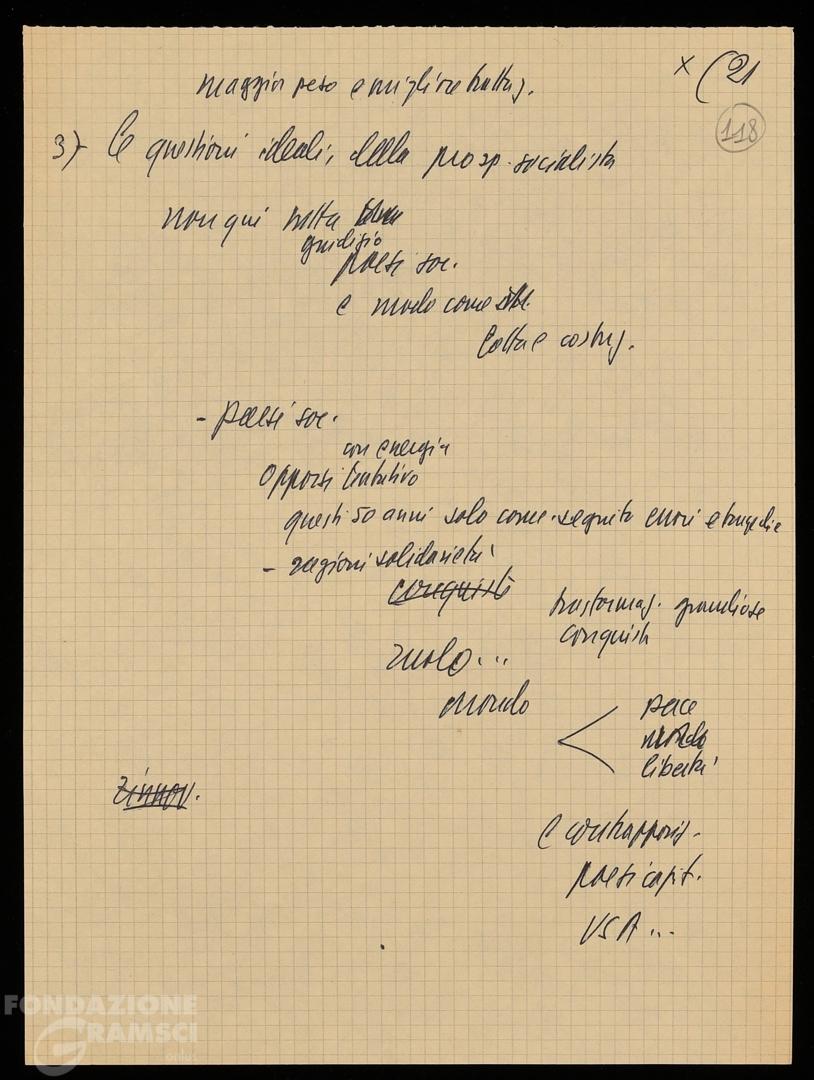 x (21
118
maggior peso e migliore trattaz.
3) Le questioni ideali, della prosp. socialista
non qui tutta
giudizio
paesi soc.
e modo come
lotta e costruz.
- paesi soc.
con energia
opporsi tentativo
questi 50 anni solo come seguito errori e tragedie
- ragioni solidarietà
conquiste
trasformaz. grandiose
conquista
ruolo...
mondo
pace
mondo
libertà
rinnov.
e contrapposiz.
paesi capit.
USA...
FONDAZIONE
GRAMSCI
onlus